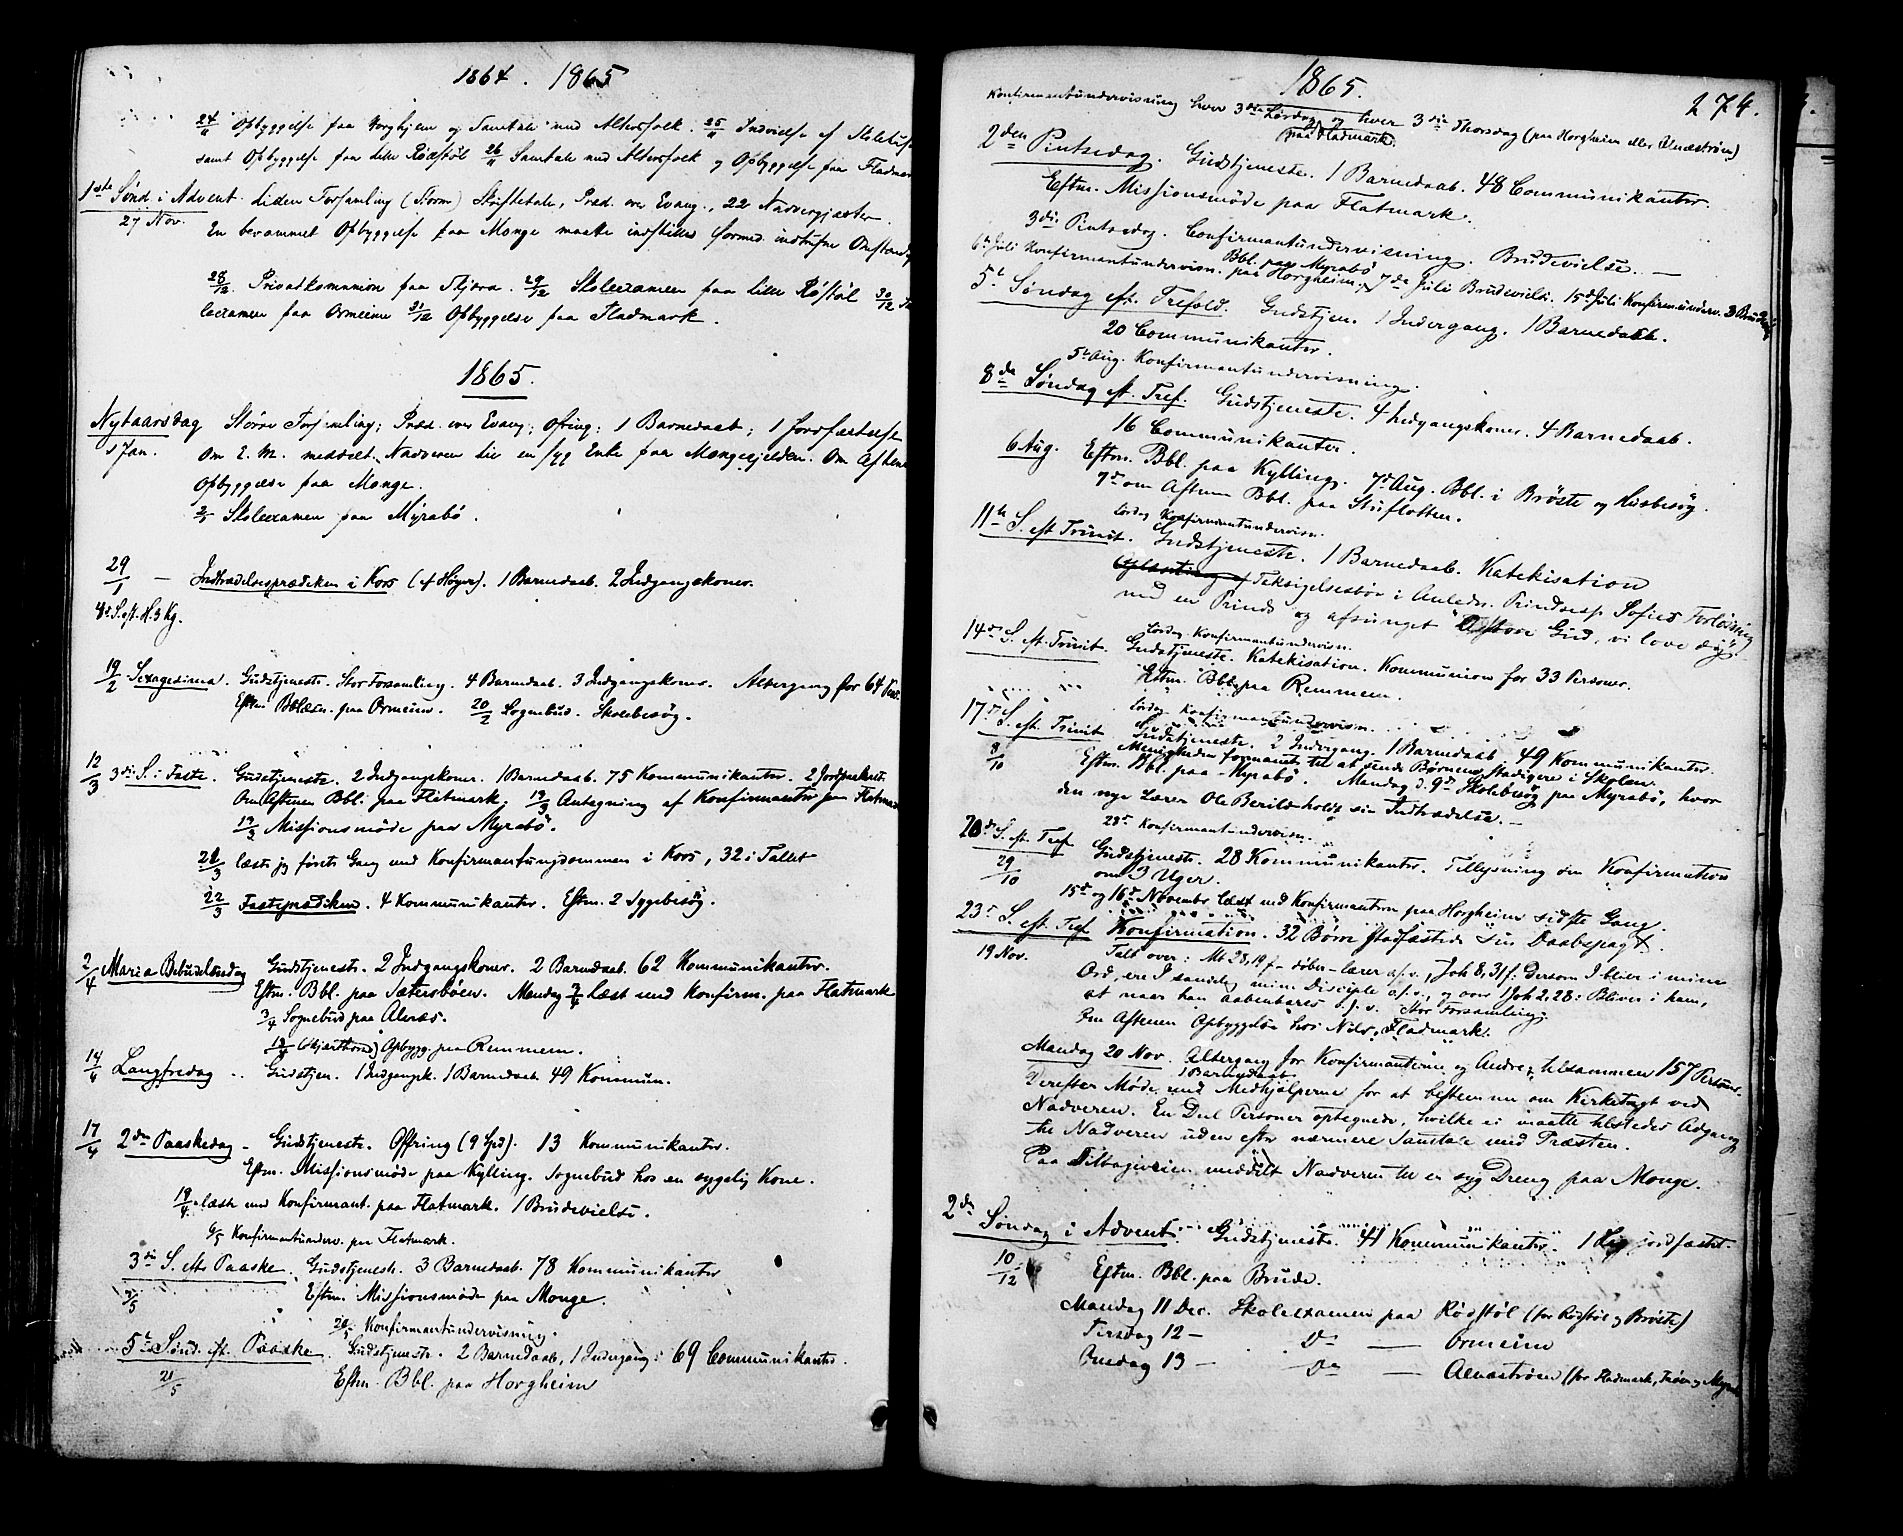 1864. 1865
24/11 Opbyggelse paa Horghjem og Samtale med Altersfolk. 25/11 Indvielse af
samt Opbyggelse paa Lille Rødstøl 26/11 Samtale med Altersfolk og Opbyggelse paa Fladmark
1ste Sønd i Advent. Liden Forsamling (Storm) Skriftetale, Præd. over Evang., 22 Nadvergjæster.
27 Nov. En berammet Opbyggelse paa Monge maatte indstilles formed. indtrufne Omstændig
28/12. Privatkommunion paa 29/12 Skoleexamen paa Lille Røstøl 30/12
leexamen paa Ormeim 31/12 Opbyggelse paa Fladmark.
1865.
Nytaarsdag Større Forsamling; Præd. over Evang; Ofring; 1 Barnedaab; 1 Jordfæstelse
1 Jan. Om E. M. meddelt Nadveren til en syg Enke paa Mongeejeldem. Om Aftenen
Opbyggelse paa Monge.
2/1 Skoleexamen paa Myrabø.
29/1 — Indtrædelsesprædiken i Kors (af Høyer). 1 Barnedaab. 2 Indgangskoner.
4de S. eft. H. 3 Kg.
19/2 Sexagesima. Gudstjeneste. Stor Forsamling. 4 Barnedaab. 3 Indgangskoner. Altergang for 64
Eftm. Bbllæsn. paa Ormeim. 20/2 Sognebud. Skolebesøg.
12/3 3die S. i Faste. Gudstjeneste. 2 Indgangskoner. 1 Barnedaab. 75 Kommunikanter. 2 Jordfæstel.
Om Aftenen Bbl. paa Flatmark; 13/3 Antegning af Konfirmanter paa Flatmark
13/3 Missionsmøde paa Myrabø.
21/3 læste jeg første Gang med Konfirmantungdommen i Kors, 32 i Tallet
22/3 Fasteprædiken. 4 Kommunikanter. Eftm. 2 Sygebesøg.
2/4 Maria Bebudelsesdag Gudstjeneste. 2 Indgangskoner. 2 Barnedaab. 62 Kommunikanter.
Eftm. Bbl. paa Sætersbøen. Mandag 3/4 læst med Konfirm. paa Flatmark
3/4 Sognebud paa Alnæs.
13/4 (Skjærthorsd) Opbygg. paa Remmem.
14/4 Langfredag .. Gudstjen. 1 Indgangsk. 1 Barnedaab. 49 Kommun.
17/4 2den Paaskedag – Gudstjeneste. Offring (9 Spd). 13 Kommunikanter.
Eftm. Missionsmøde paa Kylling. Sognebud hos en sygelig Kone.
19/4 læste med Konfirmant. paa Flatmark. 1 Brudevielse.
6/5 Konfirmantunderv. paa Flatmark.
3die S. efter Paaske. Gudstjeneste. 3 Barnedaab. 78 Kommunikanter
7/5 Eftm. Missionsmøde paa Monge.
20/5 Konfirmantundervisning.
5te Sønd. eft. Paaske. Gudstjeneste. 2 Barnedaab, 1 Indergang: 69 Communikanter.
21/5 Eftm. Bbl. paa Horgheim
1865.
274.
Konfirmantundervisning hver 3die Lørdag og hver 3die Thorsdag (paa Horgheim eller Alnæstrøen)
paa Fladmark.
2den Pintsedag. Gudstjeneste. 1 Barnedaab. 48 Communikanter.
Eftm. Missionsmøde paa Flatmark.
3die Pintsedag. Confirmantundervisning. Brudevielse. —
Bbl. paa Myrabø
6te Juli Konfirmantundervisn. paa Horgheim, 7de Juli Brudevielse. 15de Juli Konfirm.underv. 3 Brudev.
5te Søndag eft. Trefold. Gudstjen. 1 Indergang. 1 Barnedaab.
20 Communikanter.
5te Aug. Konfirmantundervisning.
8de Søndag eft. Tref. Gudstjeneste. 4 Indgangskoner. 4 Barnedaab.
16 Communikanter.
6 Aug. Eftm. Bbl. paa Kylling. 7de Aug. Bbl. i Brøste og Husbesøg.
7de om Aftenen Bbl. paa Stuflotten.
Lørdag Konfirmantundervisn.
11te S. eft Trinit. Gudstjeneste. 1 Barnedaab. Katekisation
Taksigelsesbøn i Anledn. Prindsesse Sofies Forløsning
med en Prinds og afsunget "O store Gud, vi love dig."
Lørdag Konfirmantundervisn.
14de S. eft. Trinit. Gudstjeneste. Katekisation. Kommunion for 33 Personer.
Eftm. Bbl. paa Remmem.
Lørdag Konfirmantundervisn.
17de S. eft. Trinit Gudstjeneste. 2 Indergang. 1 Barnedaab 49 Kommunikanter.
Menigheden formanet til at sende Børnene stadigere i Skolen.
8/10 Eftm. Bbl. paa Myrabø. Mandag d. 9de Skolebesøg paa Myrabø, hvor
den nye Lærer Ole Berild holdt sin Indtrædelse. —
28de Konfirmantundervisn.
20de S. eft. Tref. Gudstjeneste. 28 Kommunikanter. Tillysning om Konfirmation
29/10 om 3 Uger.
15de og 16de November læst med Konfirmanterne paa Horgheim sidste Gang.
23de S. eft. Tref Konfirmation. 32 Børn stadfæstede sin Daabspagt.
19 Nov. Talt over: Mt 28,19 f – døber – lærer o.s.v., Joh 8,31 f: Dersom I blive i mine
Ord, ere I sandelig mine Disciple o.s.v., og over 1 Joh 2,28: Bliver i ham,
at naar han aabenbares o.s.v. Stor Forsamling.
Om Aftenen Opbyggelse hos Nils Fladmark.
Mandag 20 Nov. Altergang for Konfirmanterne og Andre, tilsammen 157 Personer.
1 Barnedaab.
Derefter Møde med Medhjælperne for at bestemme om Kirketugt ved
Nadveren. En Deel Personer optegnede, hvilke ei maatte tilstedes Adgang
til Nadveren uden efter nærmere Samtale med Præsten.
Paa Tilbagiveien meddelt Nadveren til en syg Dreng paa Monge.
2den Søndag i Advent. Gudstjeneste. 41 Kommunikanter. 1 Lig jordfæstet.
10/12 Eftm. Bbl. paa Brude.
Mandag 11 Dec. Skoleexamen paa Rødstøl (for Rødstøl og Brøste)
Tirsdag 12 – Do — Ormeim
Onsdag 13 – Do — Alnæstrøen (for Fladmark, Trøen og Myrabø